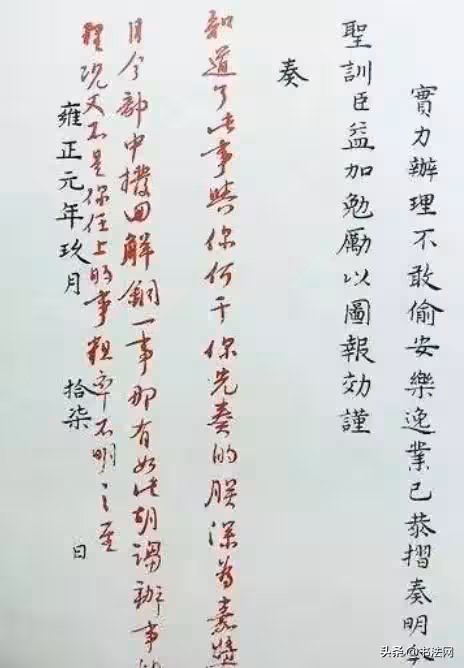 實力辦理不敢偷安樂逸業已恭摺奏明
聖訓臣益加勉勵以圖報効謹
奏
知道了此事與你何干你先奏的朕深為嘉奬
目今部中撥回解銅一事那有如此胡謅辦事的
理况又不是你任上的事粗率不明之至
雍正元年玖月 拾柒 日
头条 @书法网